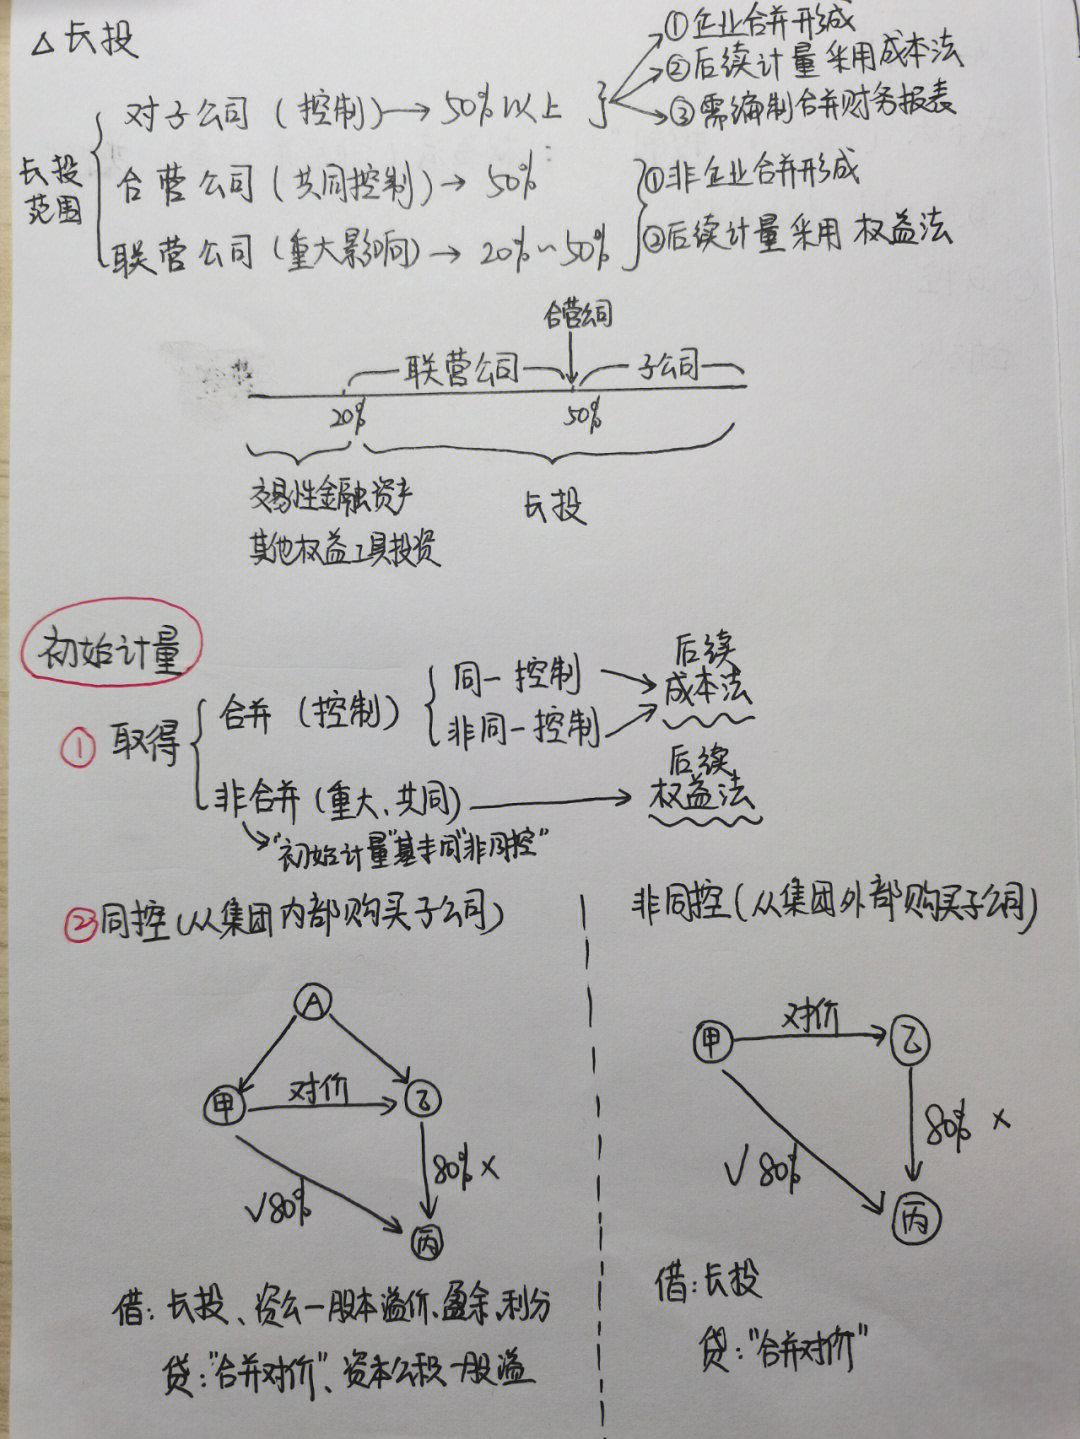 △长投
长投范围
对子公司（控制）→50%以上
①企业合并形成
②后续计量采用成本法
③需编制合并财务报表
合营公司（共同控制）→50%
联营公司（重大影响）→20%~50%
①非企业合并形成
②后续计量采用权益法
合营公司
联营公司 子公司
20% 50%
交易性金融资产
其他权益工具投资
长投
初始计量
①取得
合并（控制）
同一控制
非同一控制
后续
成本法
非合并（重大、共同）
后续
权益法
"初始计量"基本同"非同控"
②同控（从集团内部购买子公司）
非同控（从集团外部购买子公司）
A
甲 对价 乙
√80% 80% ×
丙
借：长投、资公一股本溢价、盈余、利分
贷："合并对价"、资本公积一股溢
甲 对价 乙
√80% 80% ×
丙
借：长投
贷："合并对价"